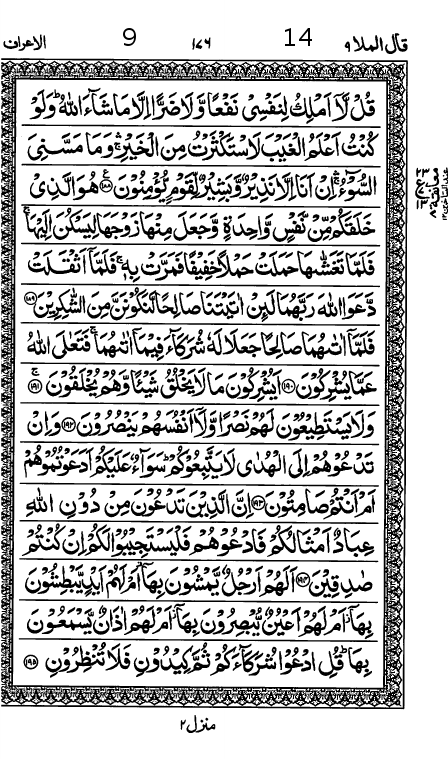 قال الملا ٩ 14 ١٧٦ 9 الاعراف
قُلْ لَّاۤ اَمْلِكُ لِنَفْسِیْ نَفْعًا وَّ لَا ضَرًّا اِلَّا مَا شَآءَ اللّٰهُ ؕ وَ لَوْ
كُنْتُ اَعْلَمُ الْغَیْبَ لَاسْتَكْثَرْتُ مِنَ الْخَیْرِ ۛۚ وَ مَا مَسَّنِیَ
السُّوْٓءُ ۛۚ اِنْ اَنَا اِلَّا نَذِیْرٌ وَّ بَشِیْرٌ لِّقَوْمٍ یُّؤْمِنُوْنَ ﴿۱۸۸﴾ هُوَ الَّذِیْ
خَلَقَكُمْ مِّنْ نَّفْسٍ وَّاحِدَةٍ وَّ جَعَلَ مِنْهَا زَوْجَهَا لِیَسْكُنَ اِلَیْهَا ۚ
فَلَمَّا تَغَشّٰىهَا حَمَلَتْ حَمْلًا خَفِیْفًا فَمَرَّتْ بِهٖ ۚ فَلَمَّاۤ اَثْقَلَتْ
دَّعَوَا اللّٰهَ رَبَّهُمَا لَىِٕنْ اٰتَیْتَنَا صَالِحًا لَّنَكُوْنَنَّ مِنَ الشّٰكِرِیْنَ ﴿۱۸۹﴾
فَلَمَّاۤ اٰتٰىهُمَا صَالِحًا جَعَلَا لَهٗ شُرَكَآءَ فِیْمَاۤ اٰتٰىهُمَا ۚ فَتَعٰلَی اللّٰهُ
عَمَّا یُشْرِكُوْنَ ﴿۱۹۰﴾ اَیُشْرِكُوْنَ مَا لَا یَخْلُقُ شَیْـًٔا وَّ هُمْ یُخْلَقُوْنَ ﴿۱۹۱﴾
وَ لَا یَسْتَطِیْعُوْنَ لَهُمْ نَصْرًا وَّ لَاۤ اَنْفُسَهُمْ یَنْصُرُوْنَ ﴿۱۹۲﴾ وَ اِنْ
تَدْعُوْهُمْ اِلَی الْهُدٰی لَا یَتَّبِعُوْكُمْ ؕ سَوَآءٌ عَلَیْكُمْ اَدَعَوْتُمُوْهُمْ
اَمْ اَنْتُمْ صَامِتُوْنَ ﴿۱۹۳﴾ اِنَّ الَّذِیْنَ تَدْعُوْنَ مِنْ دُوْنِ اللّٰهِ
عِبَادٌ اَمْثَالُكُمْ فَادْعُوْهُمْ فَلْیَسْتَجِیْبُوْا لَكُمْ اِنْ كُنْتُمْ
صٰدِقِیْنَ ﴿۱۹۴﴾ اَلَهُمْ اَرْجُلٌ یَّمْشُوْنَ بِهَاۤ ؗ اَمْ لَهُمْ اَیْدٍ یَّبْطِشُوْنَ
بِهَاۤ ؗ اَمْ لَهُمْ اَعْیُنٌ یُّبْصِرُوْنَ بِهَاۤ ؗ اَمْ لَهُمْ اٰذَانٌ یَّسْمَعُوْنَ
بِهَا ؕ قُلِ ادْعُوْا شُرَكَآءَكُمْ ثُمَّ كِیْدُوْنِ فَلَا تُنْظِرُوْنِ ﴿۱۹۵﴾
منزل ٢